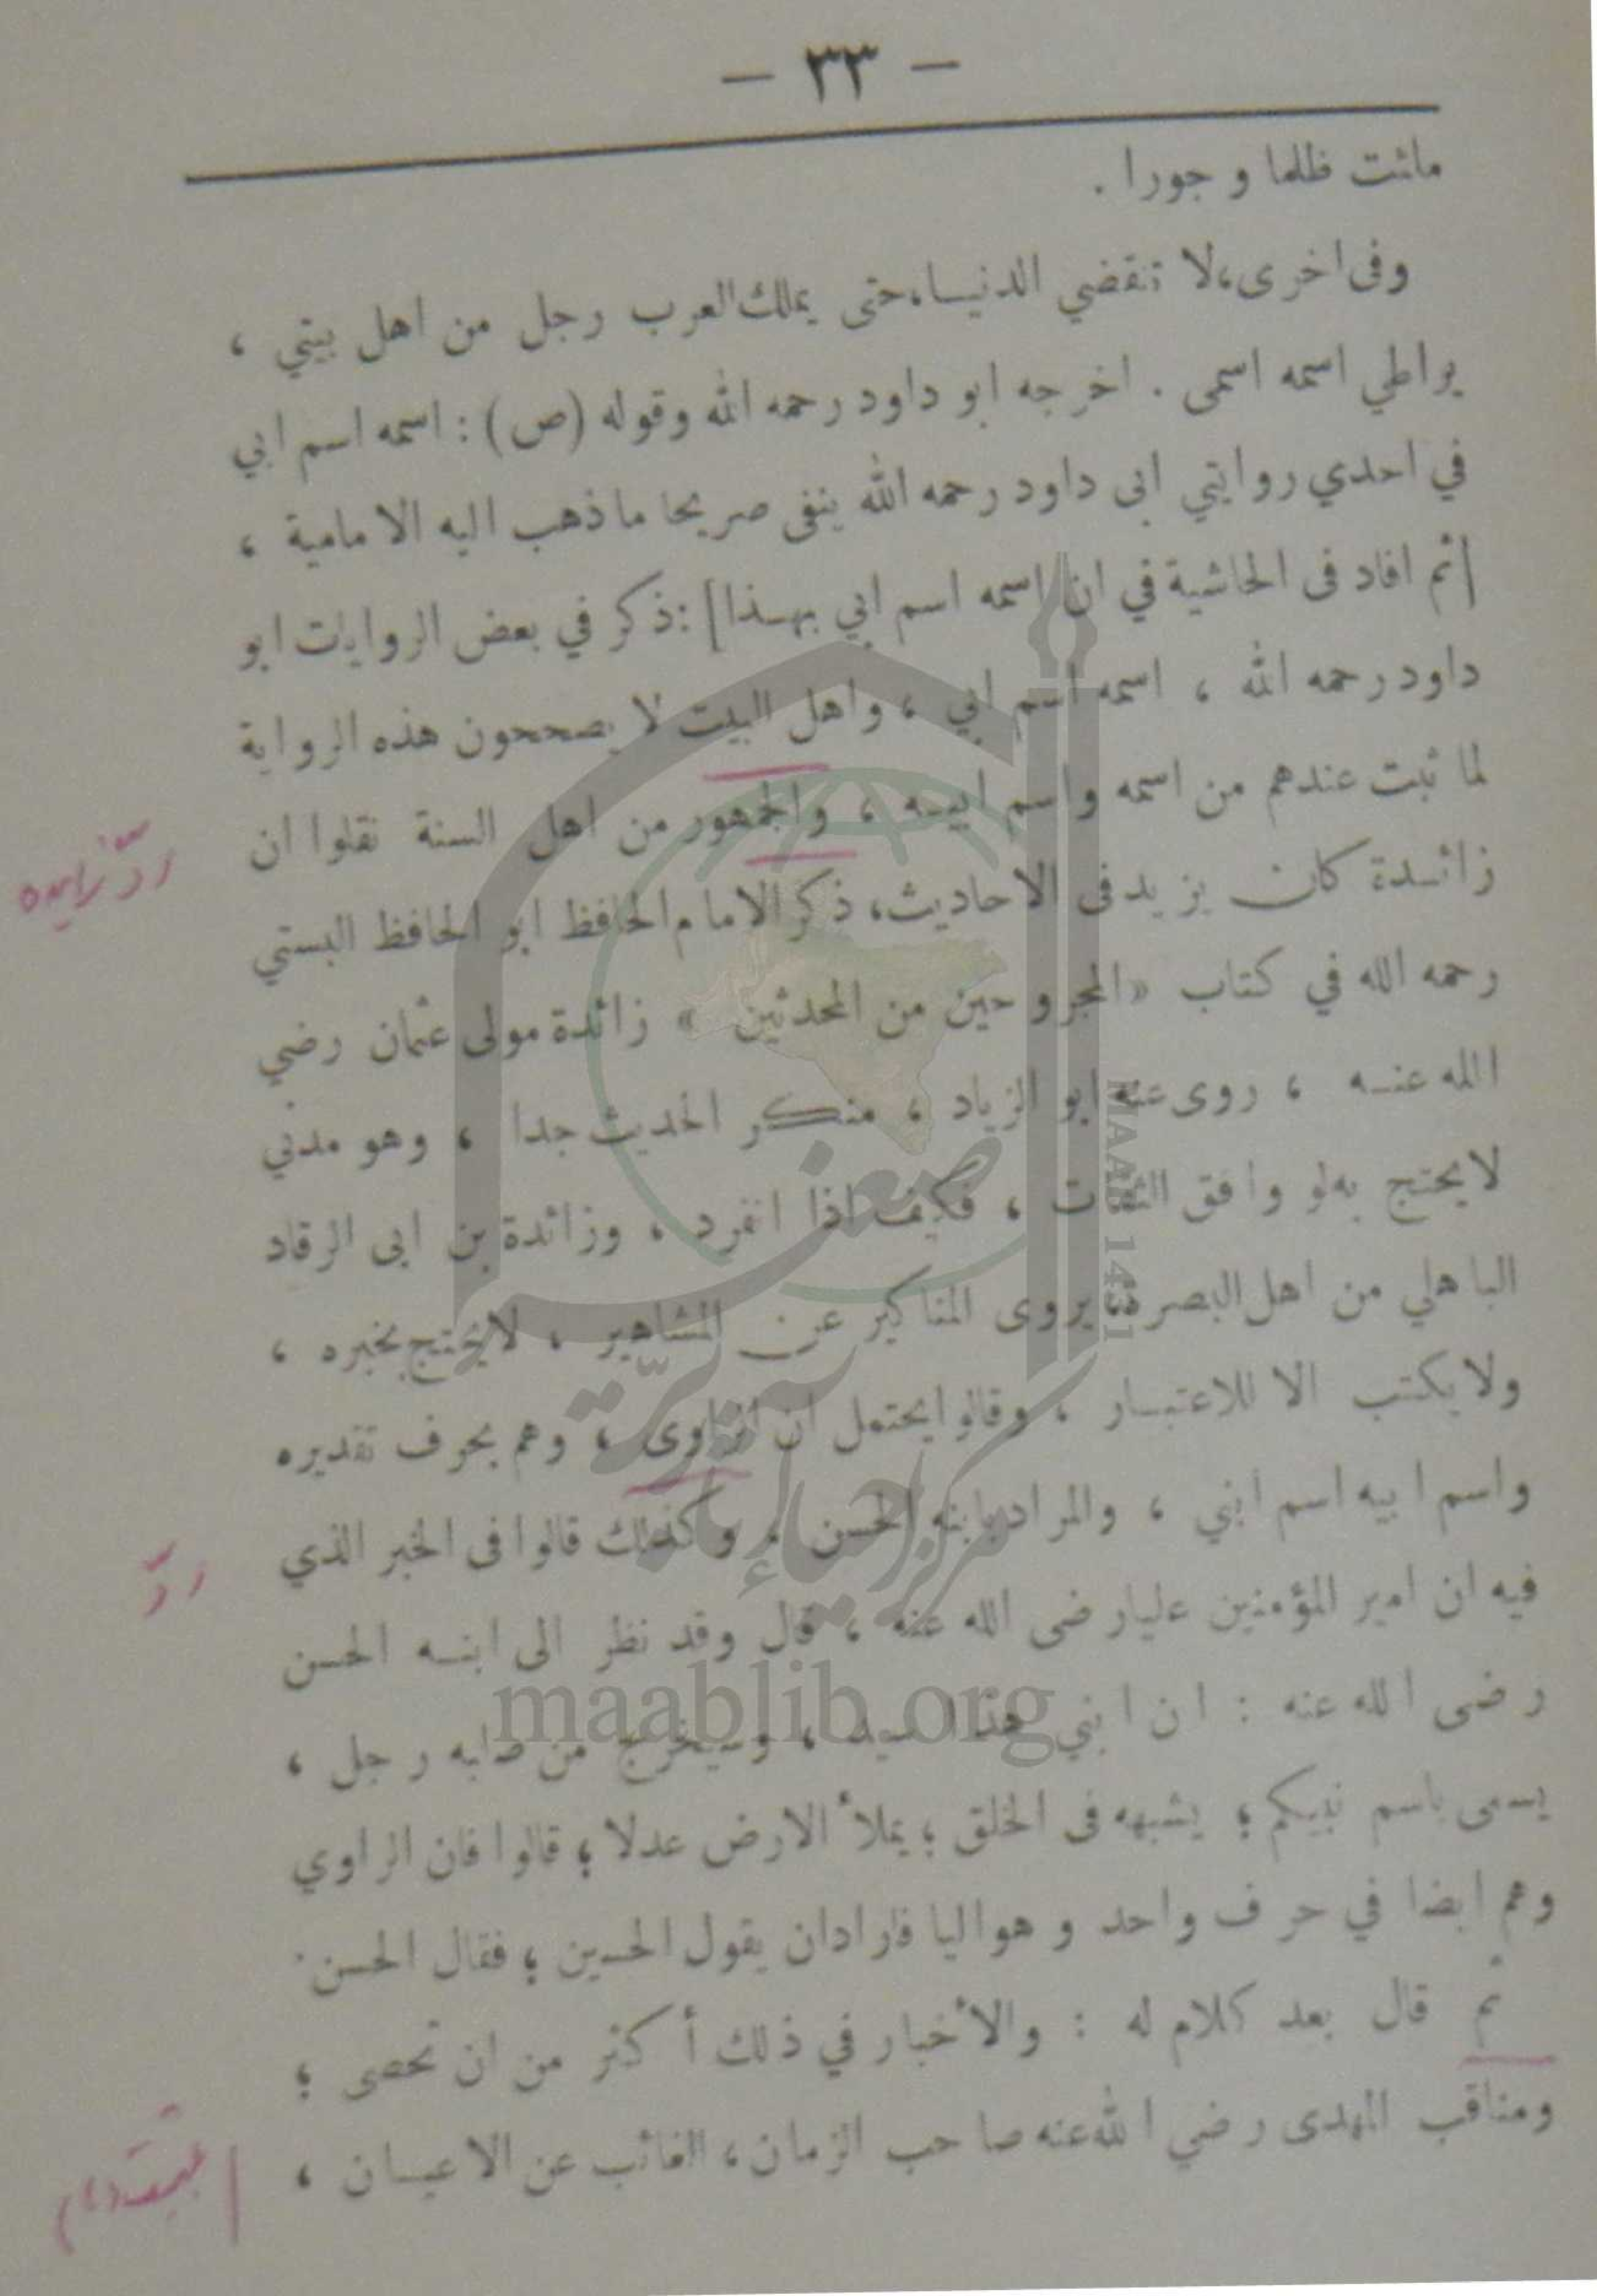 – ٣٣ –
مائت ظلما و جورا .
وفى اخرى، لا تنقضي الدنيـا، حتى يملك العرب رجل من اهل بيتي ،
يواطي اسمه اسمى . اخرجه ابو داود رحمه الله وقوله (ص) : اسمه اسم ابي
في احدي روايتي ابى داود رحمه الله ينفى صريحا ماذهب اليه الامامية ،
[ثم افاد فى الحاشية في ان اسمه اسم ابي بهـذا] : ذكر في بعض الروايات ابو
داود رحمه الله ، اسمه اسم ابي ، واهل البيت لا يصححون هذه الرواية
لما ثبت عندهم من اسمه واسم ابيـه ، والجمهور من اهل السنة نقلوا ان
ردّ زايده
زائـدة كان يزيد فى الاحاديث، ذكر الامام الحافظ ابو الحافظ البستي
رحمه الله في كتاب «المجروحين من المحدثين» زائدة مولى عثمان رضي
الله عنـه ، روى عنه ابو الزياد ، منكر الحديث جدا ، وهو مدني
لا يحتج به لو وافق الثقات ، فكيف اذا انفرد ، وزائدة بن ابى الرقاد
الباهلي من اهل البصرة، يروى المناكير عن المشاهير ، لايحتج بخبره ،
ولا يكتب الا للاعتبـار ، وقالوا يحتمل ان الراوى ، وهم بحرف تقديره
واسم ابيه اسم ابني ، والمراد بابنه الحسن ، وكذلك قالوا فى الخبر الذي
ردّ
فيه ان امير المؤمنين عليا رضى الله عنه ، قال وقد نظر الى ابنـه الحسن
رضى الله عنه : ان ابني هذا سيد ، وسيخرج من صلبه رجل ،
يسمى باسم نبيكم ؛ يشبهه فى الخلق ؛ يملأ الارض عدلا ؛ قالوا فان الراوي
وهم ايضا في حرف واحد وهو اليا فاراد ان يقول الحسين ؛ فقال الحسن ٠
ثم قال بعد كلام له : والأخبار في ذلك أكثر من ان تحصى ؛
ومناقب المهدى رضي الله عنه صاحب الزمان ، الغائب عن الاعيـان ،
MAAB 1431
maablib.org